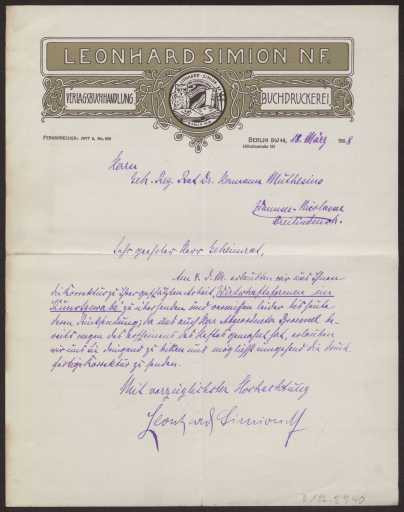 LEONHARD SIMION NF.
VERLAGSBUCHHANDLUNG
BUCHDRUCKEREI
LEONHARD SIMION
FERNSPRECHER: AMT 6, No.
BERLIN SW 48, 18. März 1908
Herrn
Geh. Reg. Rat Dr. Hermann Muthesius
Wannsee-Nicolassee
Sehr geehrter Herr Geheimrat,
Am d. M. erlaubten wir uns Ihnen
die Korrektur Ihrer geschätzten Arbeit Wirtschaftsformen im
Kunstgewerbe zu übersenden und vermissen leider bis heute
deren Rücksendung. Da uns auch Herr
des Heftes gemahnt hat, erlauben
wir uns Sie dringend zu bitten uns möglichst umgehend die druck-
fertige Korrektur zu senden.
Mit vorzüglichster Hochachtung
Leonhard Simion Nf